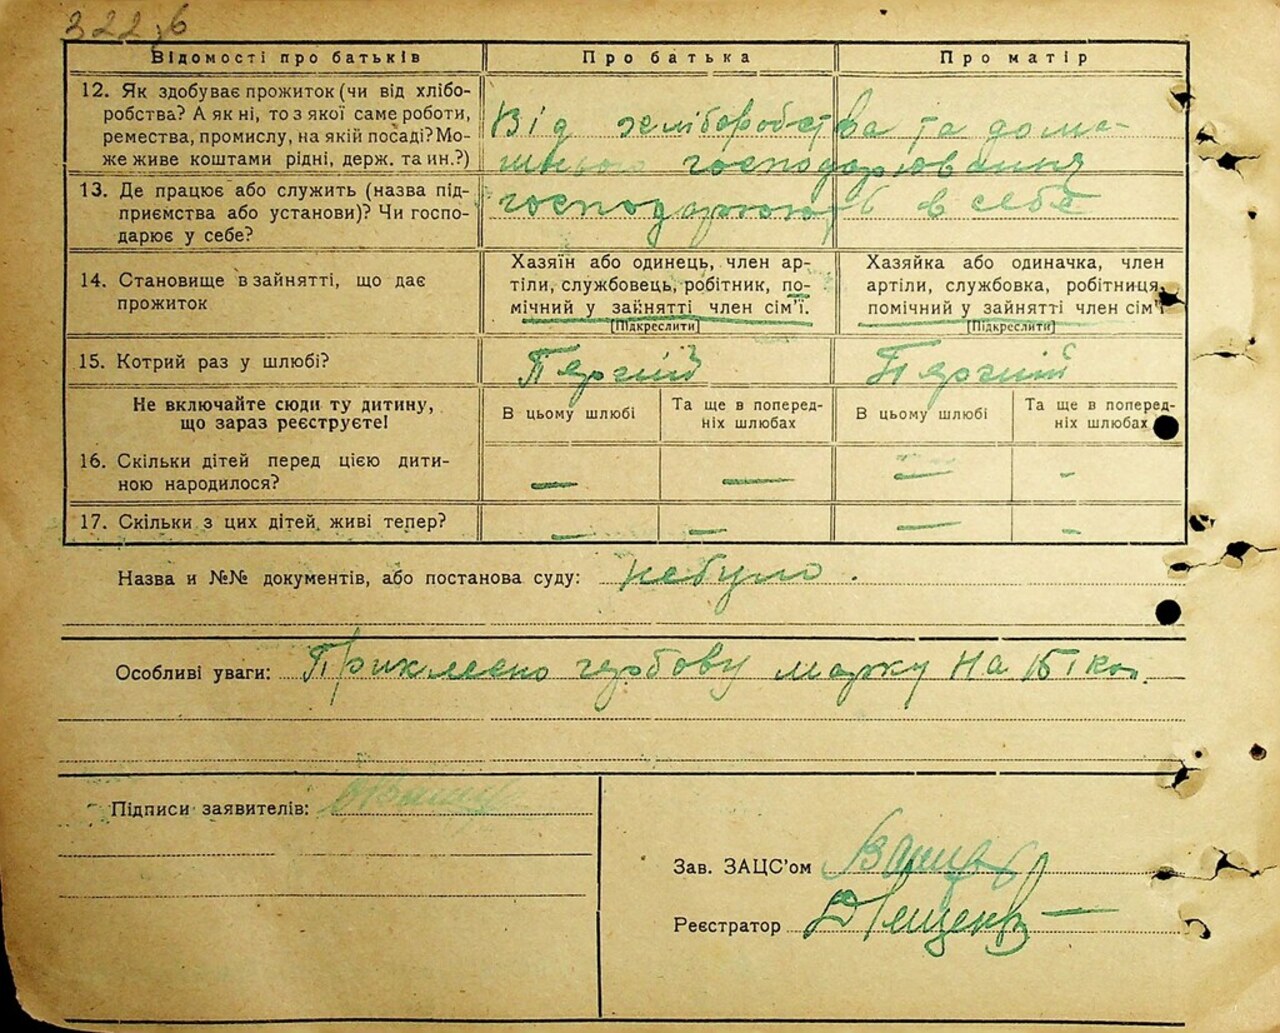 322 зв
Відомості про батьків
Про батька
Про матір
12. Як здобуває прожиток (чи від хлібо-
робства? А як ні, то з якої саме роботи,
ремества, промислу, на якій посаді? Мо-
же живе коштами рідні, держ. та ин.?)
Від хліборобства та дома-
шнього господарювання
13. Де працює або служить (назва під-
приємства або установи)? Чи госпо-
дарює у себе?
господарюють в себе
14. Становище в зайнятті, що дає
прожиток
Хазяїн або одинець, член ар-
тіли, службовець, робітник, по-
мічний у зайнятті член сім'ї.
[Підкреслити]
Хазяйка або одиначка, член
артіли, службовка, робітниця,
помічний у зайнятті член сім'ї
[Підкреслити]
15. Котрий раз у шлюбі?
Перший
Перший
Не включайте сюди ту дитину,
що зараз реєструєте!
В цьому шлюбі
Та ще в поперед-
ніх шлюбах
В цьому шлюбі
Та ще в поперед-
ніх шлюбах
16. Скільки дітей перед цією дити-
ною народилося?
— — — -
17. Скільки з цих дітей живі тепер?
— — — -
Назва и №№ документів, або постанова суду: небуло.
Особливі уваги: Приклеєно гербову марку на 15 коп.
Підписи заявителів:
Зав. ЗАЦС'ом
Реєстратор